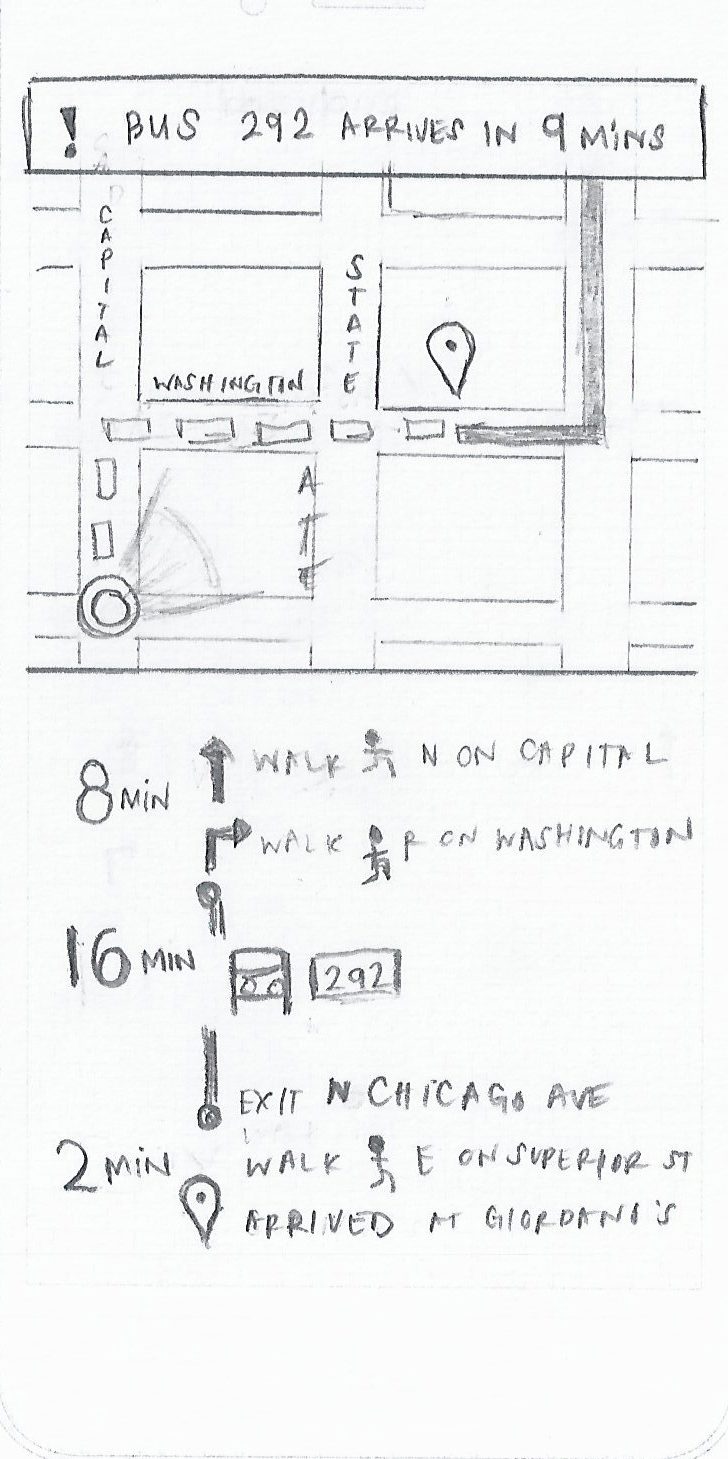 ! BUS 292 ARRIVES IN 9 MINS
CAPITAL
STATE
WASHINGTON
ATE
8 MIN
WALK N ON CAPITAL
WALK R ON WASHINGTON
16 MIN
292
EXIT N CHICAGO AVE
2 MIN
WALK E ON SUPERIOR ST
ARRIVED AT GIORDANO'S